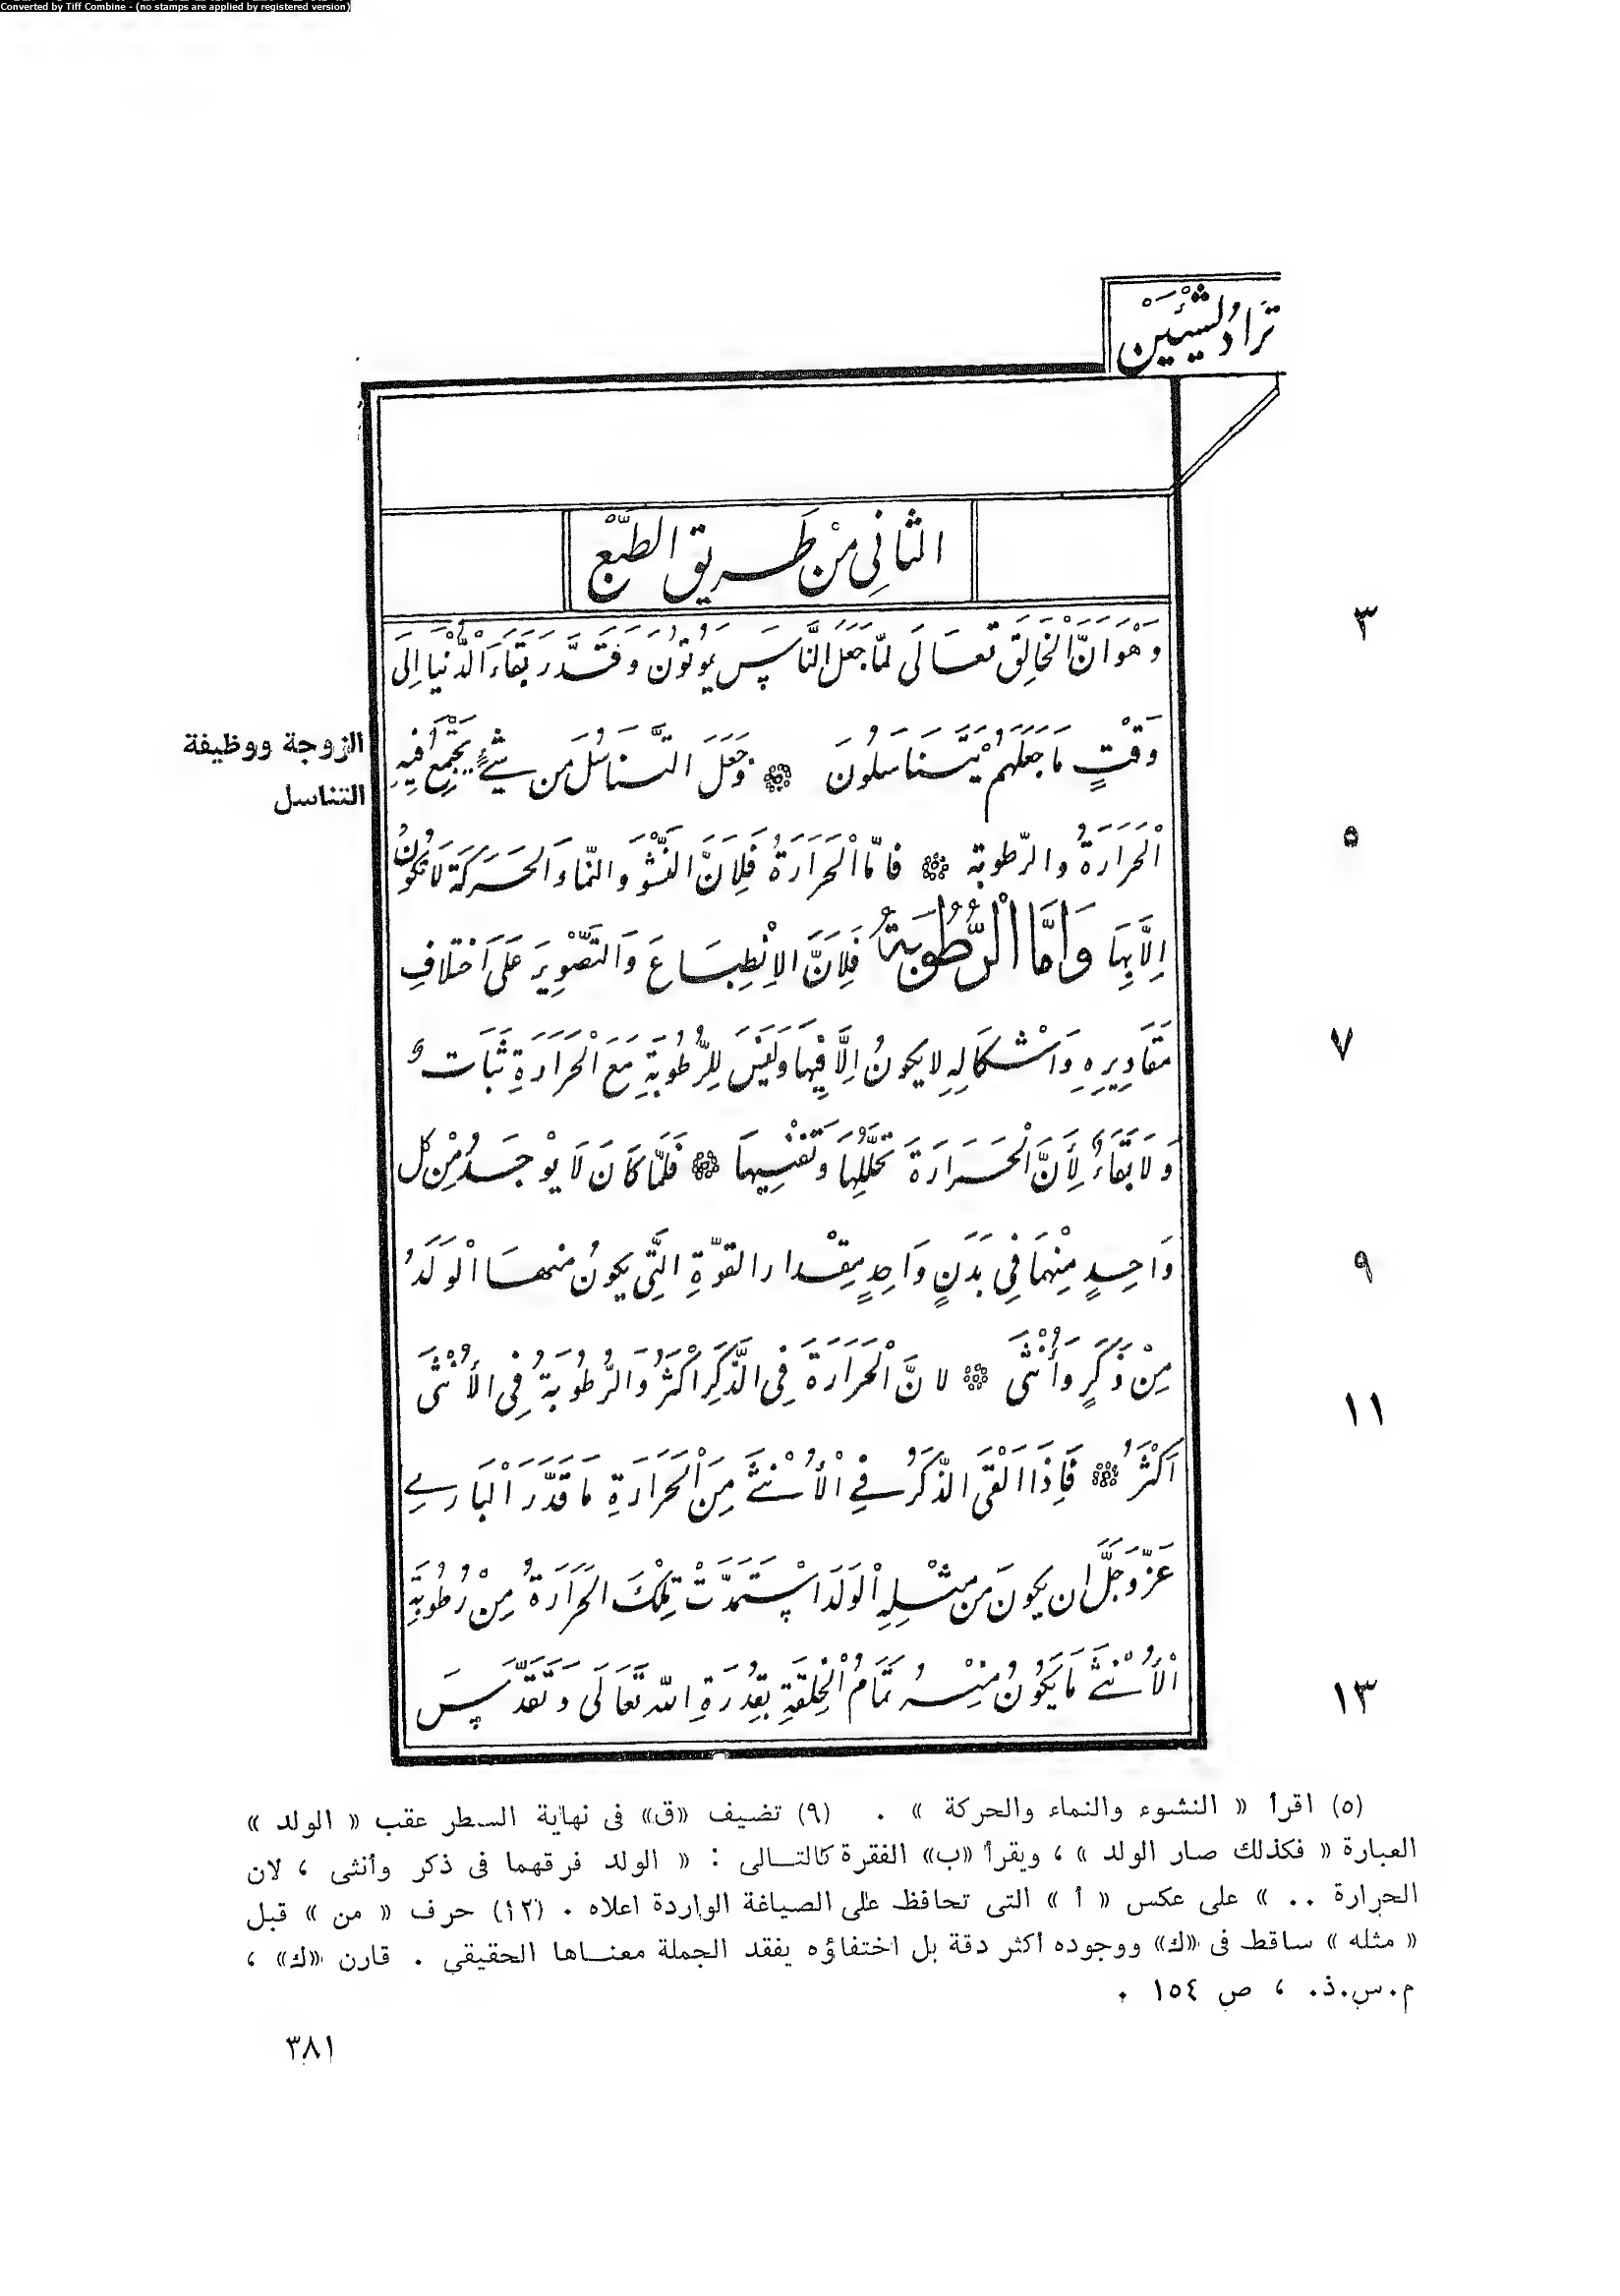 Converted by Tiff Combine - (no stamps are applied by registered version)
تراد لشيئين
الثاني من طريق الطبع
٣
وهو ان الخالق تعالى لما جعل الناس يموتون وقدر بقاء الدنيا الى
الزوجة ووظيفة التناسل
وقت ما جعلهم يتناسلون ۞ وجعل التناسل من شيء يجتمع فيه
٥
الحرارة والرطوبة ۞ فاما الحرارة فلان النشو والنماء والحركة لا تكون
الا بها واما الرطوبة فلان الانطباع والتصوير على اختلاف
٧
مقاديره واشكاله لا يكون الا فيها وليس للرطوبة مع الحرارة ثبات
ولا بقاء لأن الحرارة تحللها وتفنيها ۞ فلما كان لا يوجد من كل
٩
واحد منهما في بدن واحد مقدار القوة التي يكون منها الولد
من ذكر وأنثى ۞ لان الحرارة في الذكر اكثر والرطوبة في الأنثى
١١
اكثر ۞ فاذا القى الذكر في الأنثى من الحرارة ما قدر الباري
عز وجل ان يكون من مثله الولد استمدت تلك الحرارة من رطوبة
١٣
الأنثى ما يكون منه تمام الخلقة بقدرة الله تعالى وتقدس
(٥) اقرأ « النشوء والنماء والحركة » . (٩) تضيف «ق» فى نهاية السطر عقب « الولد »
العبارة « فكذلك صار الولد » ، ويقرأ «ب» الفقرة كالتالى : « الولد فرقهما فى ذكر وأنثى ، لان
الحرارة .. » على عكس « أ » التى تحافظ على الصياغة الواردة اعلاه . (١٢) حرف « من » قبل
« مثله » ساقط فى «ك» ووجوده أكثر دقة بل اختفاؤه يفقد الجملة معناها الحقيقى . قارن «ك» ،
م.س.ذ. ، ص ١٥٤ .
٣٨١